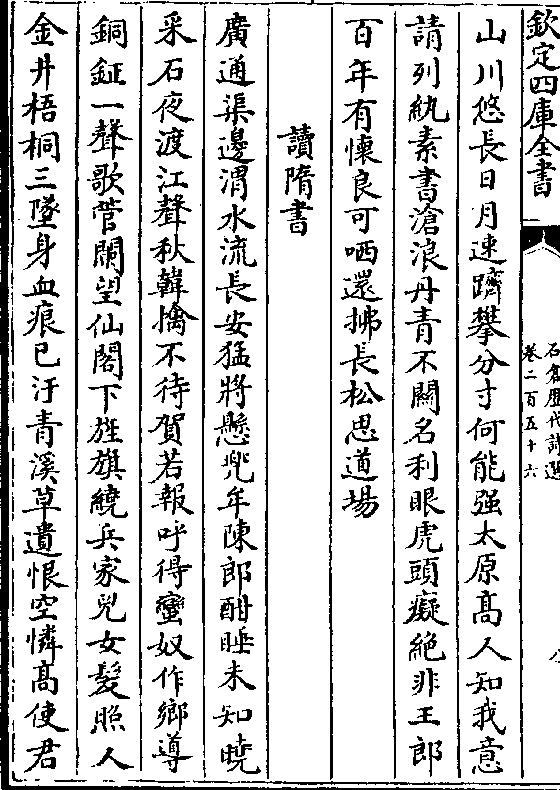 欽定四庫全書
石倉歴代詩選
卷二百五十六
山川悠長日月速躋攀分寸何能强太原高人知我意
請列紈素書滄浪丹青不關名利眼虎頭癡絶非王郎
百年有懐良可哂還拂長松思道場
讀隋書
廣通渠邊渭水流長安猛將懸兜牟陳郎酣睡未知曉
采石夜渡江聲秋韓擒不待賀若報呼得蠻奴作鄉導
銅鉦一聲歌管闌望仙閣下旌旗繞兵家兒女髮照人
金井梧桐三墜身血痕已汙青溪草遺恨空憐高使君